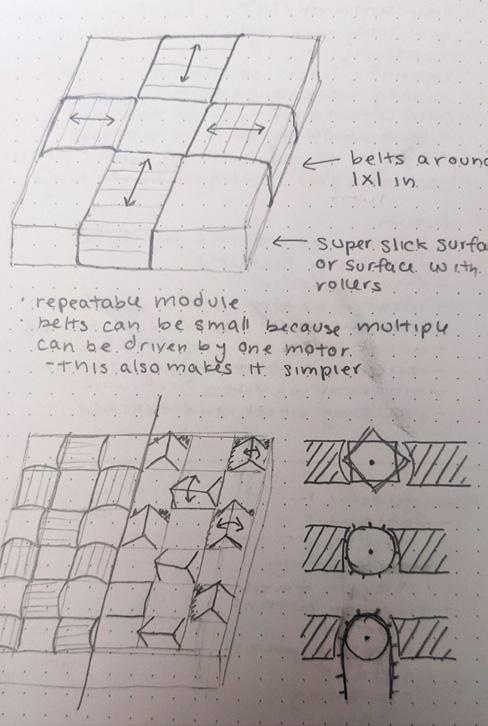 ← belts around
1x1 in.
← super slick
or surface with
rollers
· repeatable module
· belts can be small because multiple
can be driven by one motor.
- this also makes it simpler